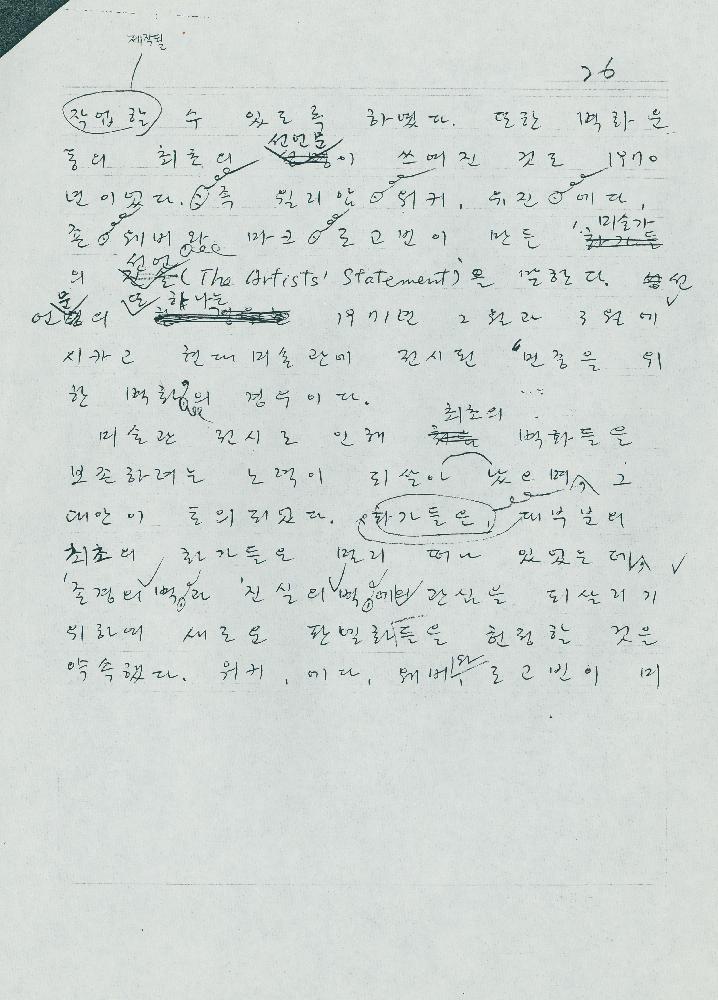 제작될
26
작업할 수 있도록 하였다. 또한 벽화운
선언문
동의 최초의 이 쓰여진 것은 1970
년이었다. 즉 윌리암 워커, 유진 에다,
미술가
존 웨버와 마크 로고빈이 만든 '화가들
선언
의 (The Artists' Statement)'을 말한다. 선
문 또 하나는
언의 1971년 2월과 3월에
시카고 현대미술관에 전시된 "민중을 위
한 벽화"의 경우이다.
최초의
미술관 전시로 인해 벽화들을
보존하려는 노력이 되살아 났으며, 그
대안이 토의되었다. 화가들은, 대부분의
최초의 화가들은 멀리 떠나 있었는데,
'존경의 벽'과 '진실의 벽'에 관심을 되살리기
위하여 새로운 판벨화들을 헌정할 것을
약속했다. 워커, 에다, 웨버와 로고빈이 미